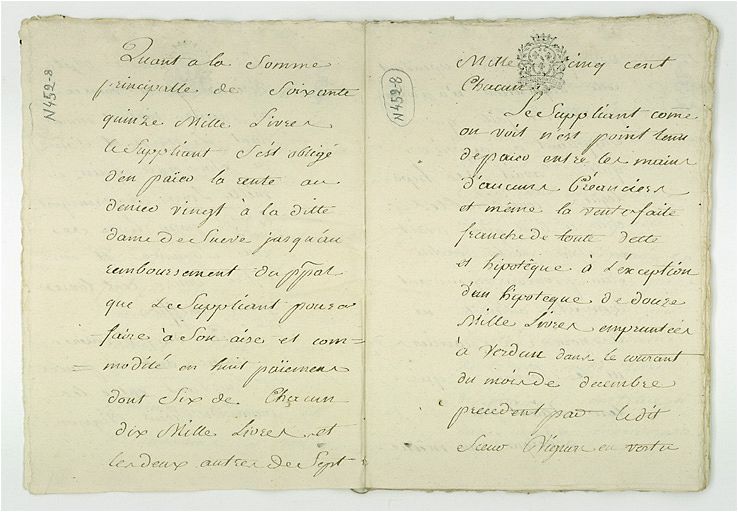 N452-8
Quant a la Somme
principalle de Soixante
quinze Mille Livres
le Suppliant s'est obligé
d'en païer la rente au
denier vingt à la ditte
dame de Sueve jusqu'au
remboursement du ppal
que Le Suppliant pourra
faire à Son aise et com=
=modité en huit païemens
dont Six de Chacun
dix Mille Livres et
les deux autres de Sept
N452-8
Mille cinq cent
Chacun
Le Suppliant come
on voit n'est point tenu
de païer entre les mains
d'aucuns Créanciers
et même la vente faite
franche de toute dette
et hipotèque à L'exception
d'un hipoteque de douze
Mille Livres empruntées
à Verdun dans le courant
du mois de decembre
precedent par le dit
Sieur en vertu